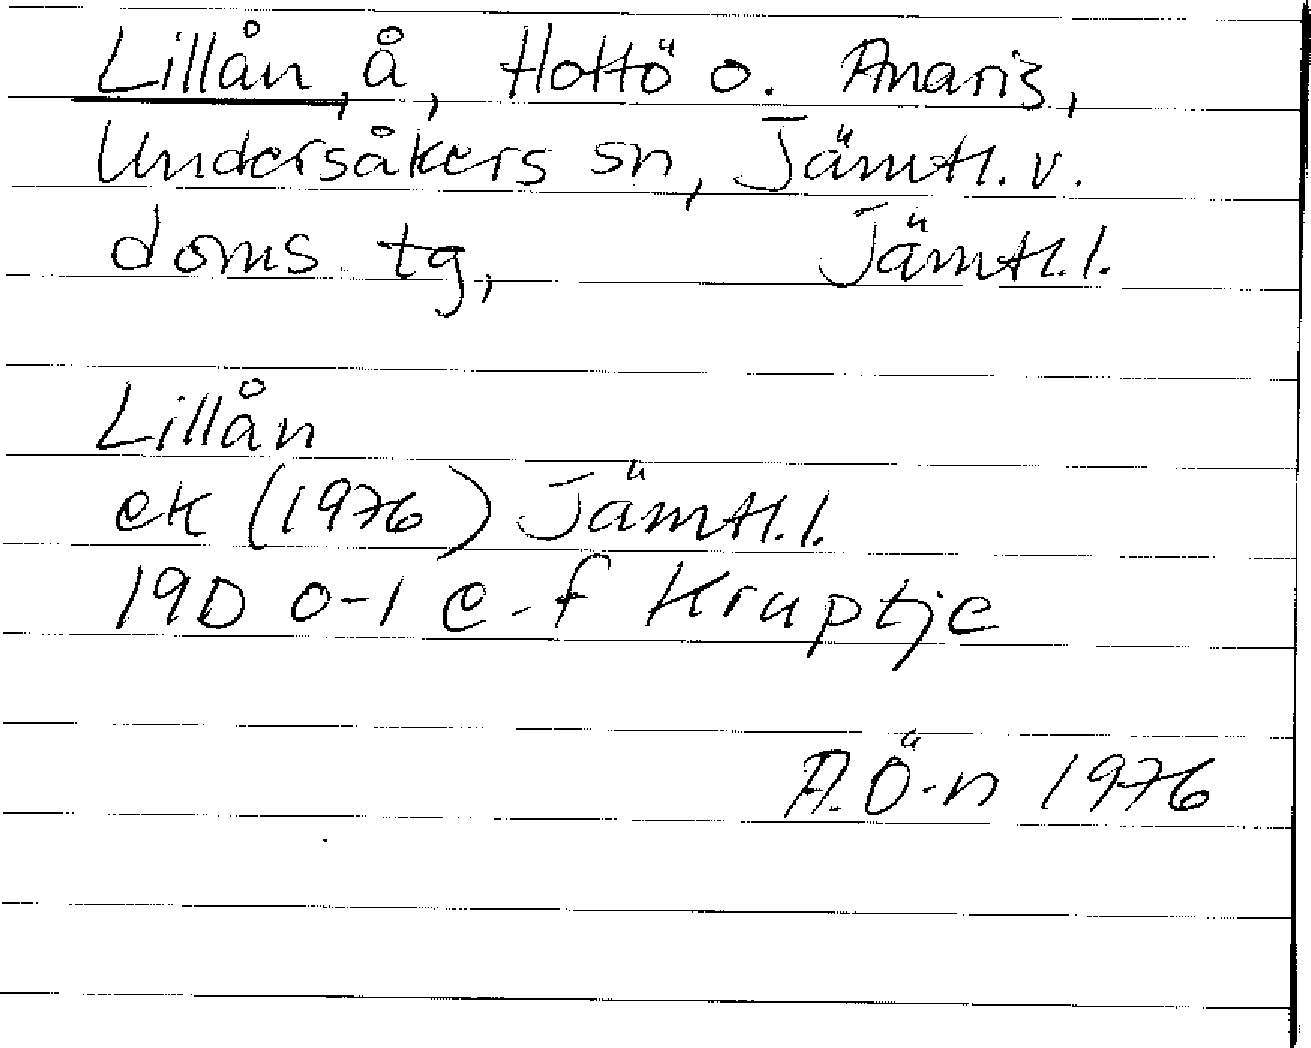 Lillån, å, Hottö o. Anaris,
Undersåkers sn, Jämtl. v.
doms tg, Jämtl.l.
Lillån
ek (1976) Jämtl.l.
19D 0-1 e-f Kruptje
A.Ö-n 1976